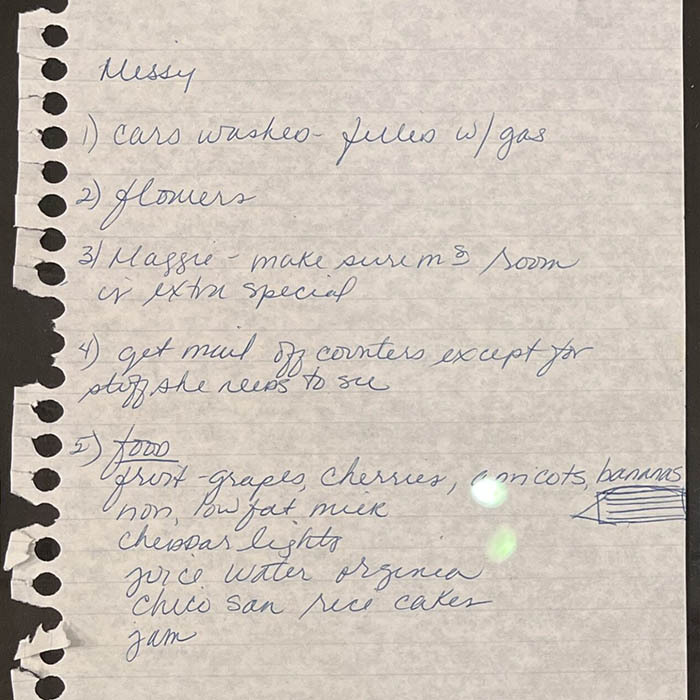 Messy
1) cars washed - filled w/ gas
2) flowers
3) Maggie - make sure m s room
is extra special
4) get mail off counters except for
stuff she needs to see
5) food
fruit - grapes, cherries, apricots, bananas
non, low fat milk
cheddar lights
juice water
chico san rice cakes
jam